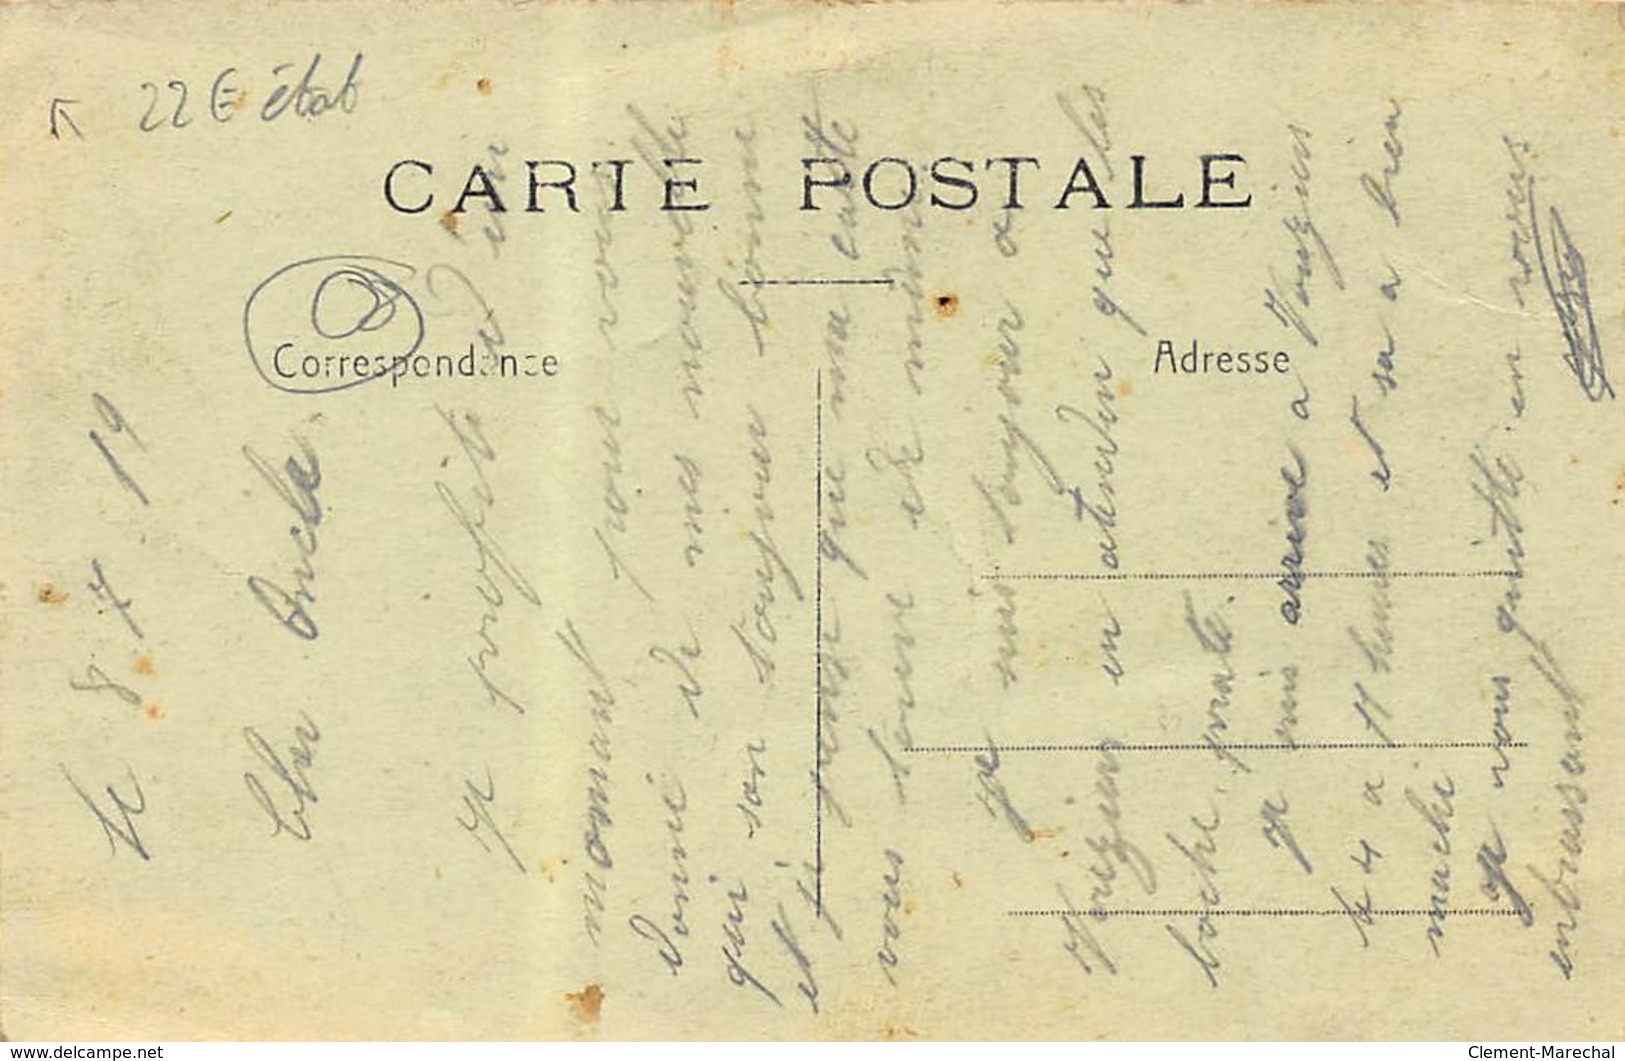 22 € état
CARTE POSTALE
Correspondance
Adresse
le 8 . 7 19
Cher Oncle
Je profite d'un
moment pour vous
donné de mes nouvelle
qui son toujour bonne
et j'espère que ma carte
vous trouve de même
Je suis toujour a
Vouziers en atendan que les
boche parte.
Je suis arrivé a Vouziers
le 4 a 11 heures et sa a bien
marché
Je vous quitte en vous
embrassant
www.delcampe.net
Clement-Marechal